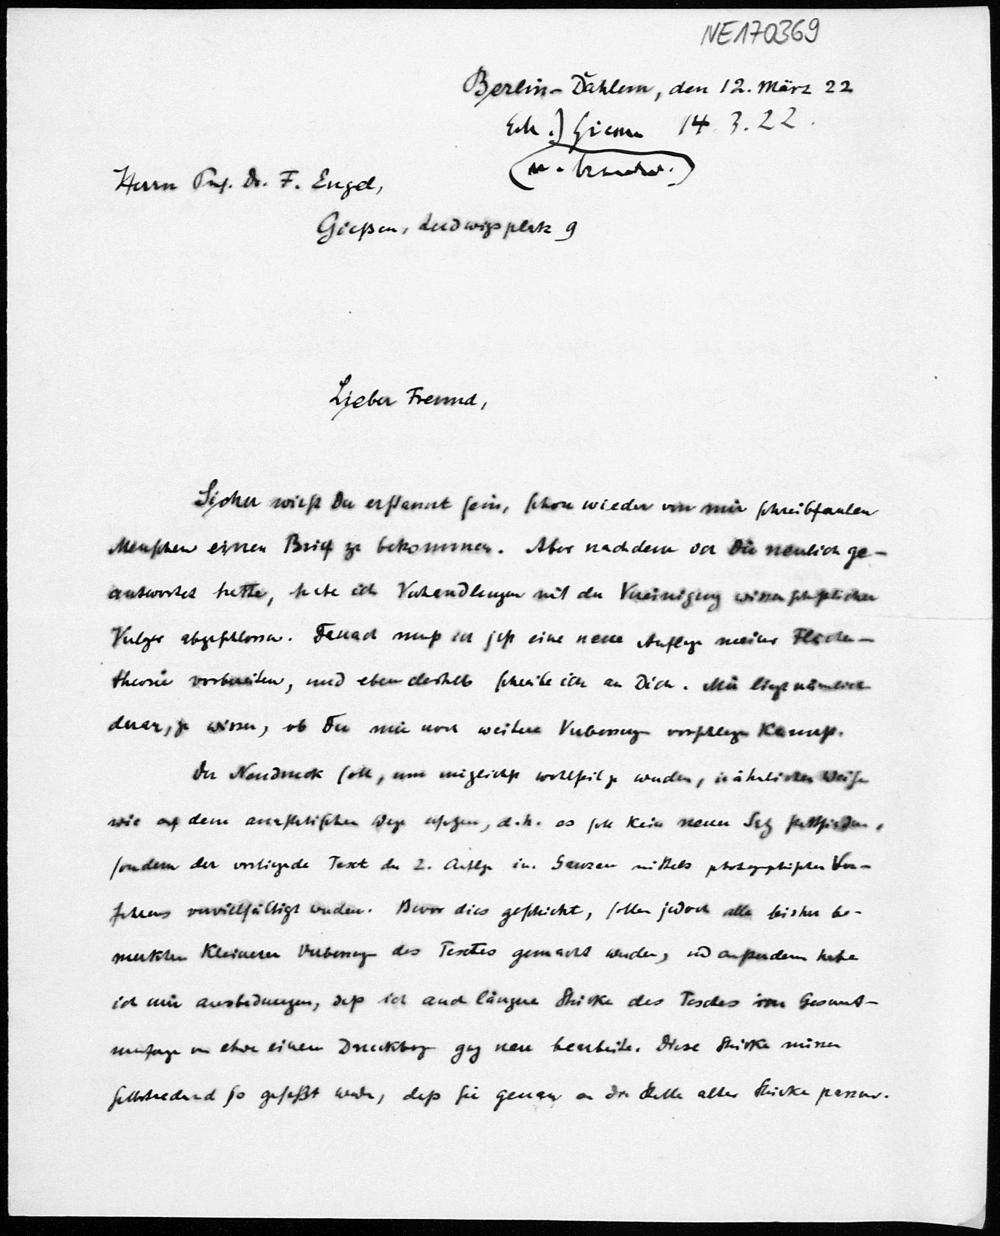 NE170369
Berlin-Dahlem, den 12. März 22
Giessen 14.3.22.
Herrn Prof. Dr. F. Engel,
Gießen, Ludwigsplatz 9
Lieber Freund,
Sicher wirst Du erstaunt sein, schon wieder von mir schreibfaulen
Menschen einen Brief zu bekommen. Aber nachdem ich Dir neulich ge-
antwortet hatte, habe ich Verhandlungen mit der Vereinigung wissenschaftlicher
Verleger abgeschlossen. Danach muß ich jetzt eine neue Auflage meiner Flächen-
theorie vorbereiten, und eben deshalb schreibe ich an Dich. Mir liegt nämlich
daran, zu wissen, ob Du mir noch weitere Verbesserungen vorschlagen kannst.
Der Neudruck soll, um möglichst wohlfeil zu werden, in ähnlicher Weise
wie auf dem anastatischen Wege erfolgen, d.h. es soll kein neuer Satz stattfinden,
sondern der vorliegende Text der 2. Auflage im Ganzen mittels photographischen Ver-
fahrens vervielfältigt werden. Bevor dies geschieht, sollen jedoch alle bisher be-
merkten kleineren Verbesserungen des Textes gemacht werden, und außerdem habe
ich mir ausbedungen, daß ich auch längere Stücke des Textes vom Gesamt-
umfange von etwa einem Druckbogen ganz neu bearbeite. Diese Stücke müssen
selbstredend so gefaßt werden, daß sie genau an die Stelle alter Stücke passen.